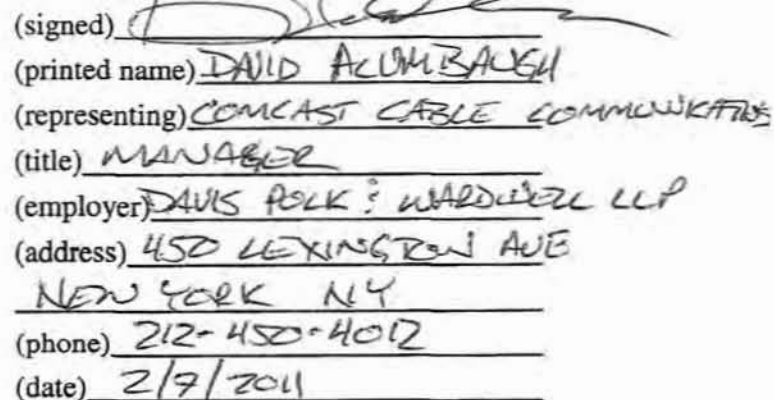 (signed)
(printed name) DAVID ALUMBAUGH
(representing) COMCAST CABLE COMMUNICATIONS
(title) MANAGER
(employer) DAVIS POLK & WARDWELL LLP
(address) 450 LEXINGTON AVE
NEW YORK NY
(phone) 212-450-4012
(date) 2/7/2011